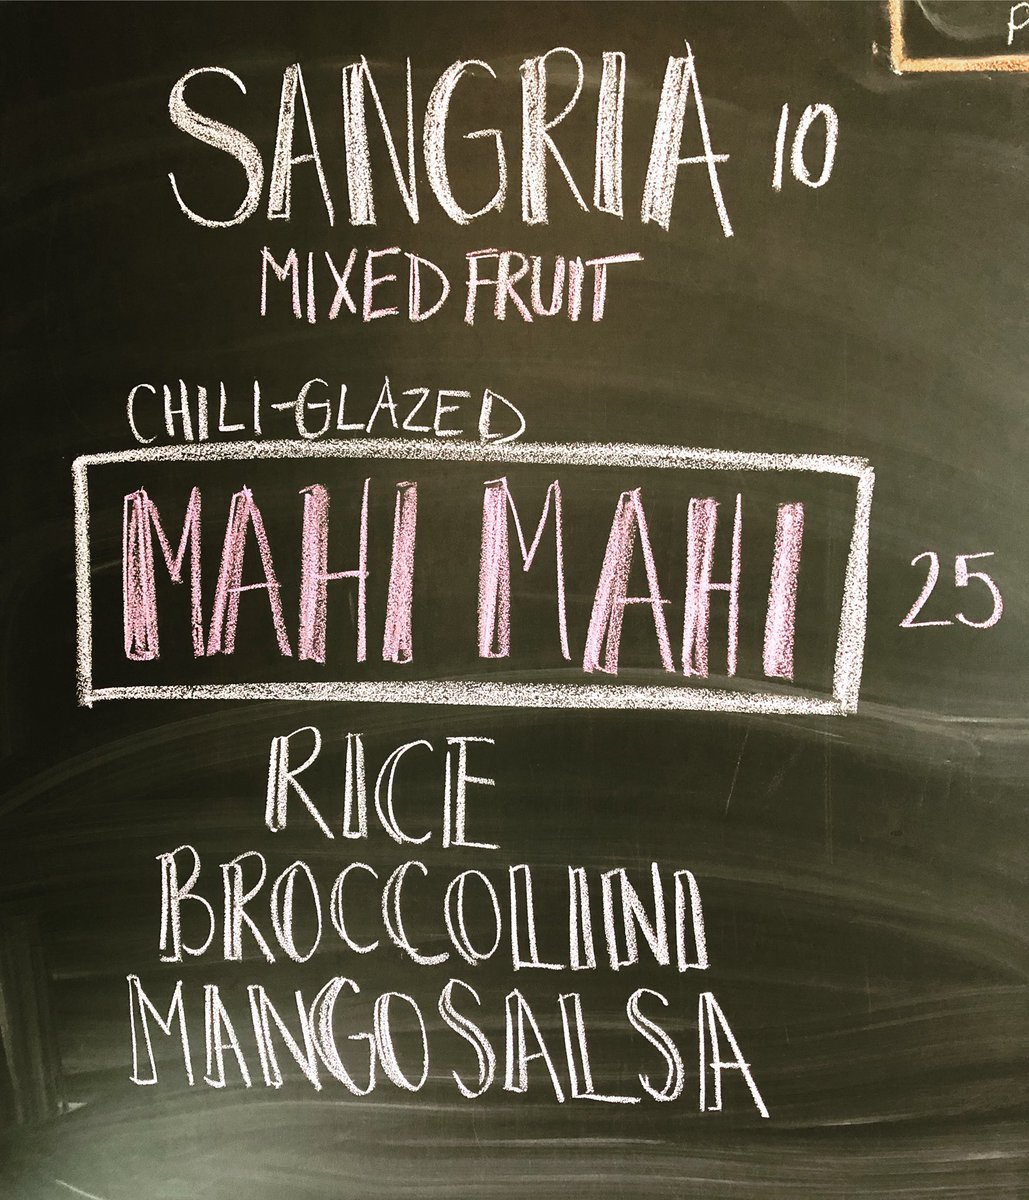 SANGRIA 10
MIXED FRUIT
CHILI-GLAZED
MAHI MAHI 25
RICE
BROCCOLINI
MANGO SALSA